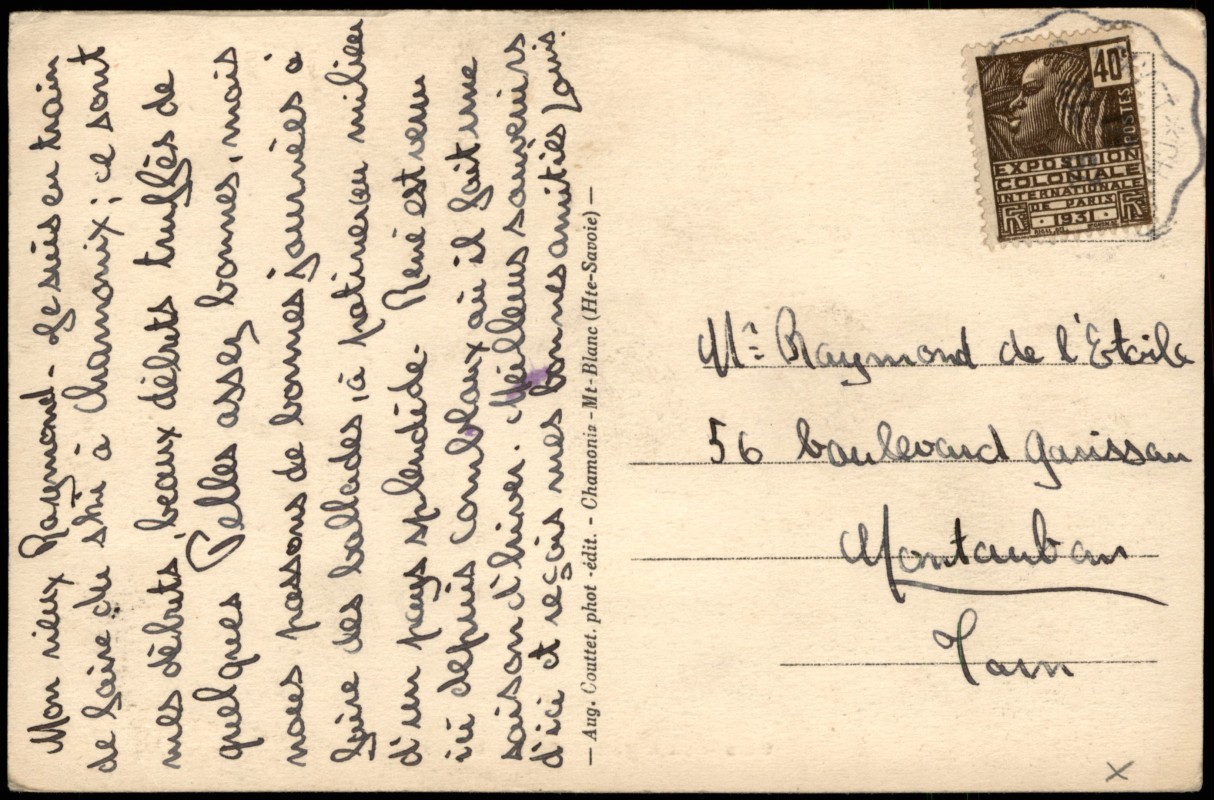 Mon vieux Raymond - Je suis en train
de faire du ski à Chamonix ; ce sont
mes débuts, beaux débuts truffés de
quelques Pelles assez bonnes, mais
nous passons de bonnes journées à
faire des ballades, à patiner au milieu
d'un pays splendide. René est venu
ici depuis Combloux où il fait une
saison d'hiver. Meilleurs souvenirs
d'ici et reçois mes bonnes amitiés Louis.
— Aug. Couttet. phot - édit. - Chamonix - Mt-Blanc (Hte-Savoie) —
40c
POSTES
EXPOSITION
COLONIALE
INTERNATIONALE
DE PARIS
RF 1931 RF
Mr Raymond de l'Etoile
56 boulevard Garisson
Montauban
Tarn
X